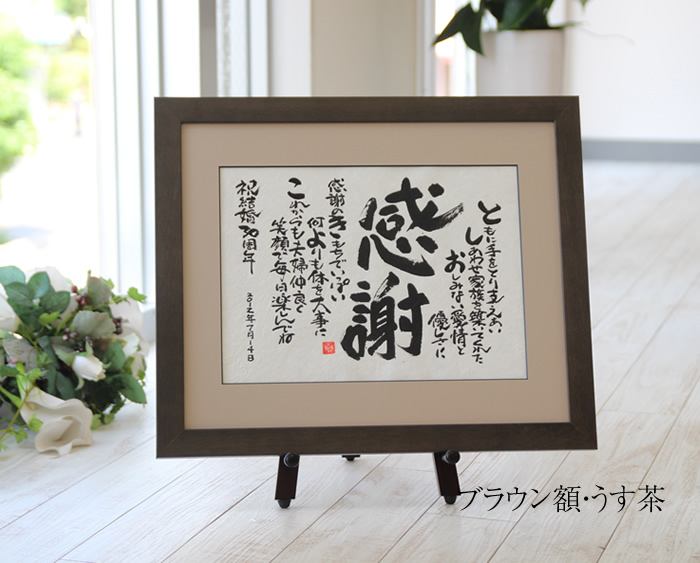 ともに手をとり支えあい
しあわせ家族を築いてくれた
おしみない愛情と
優しさに
感謝
感謝のきもちでいっぱい
何よりも体を大事に
これからも夫婦仲良く
笑顔で毎日楽しんでね
祝結婚30周年
2012年7月14日
ブラウン額・うす茶